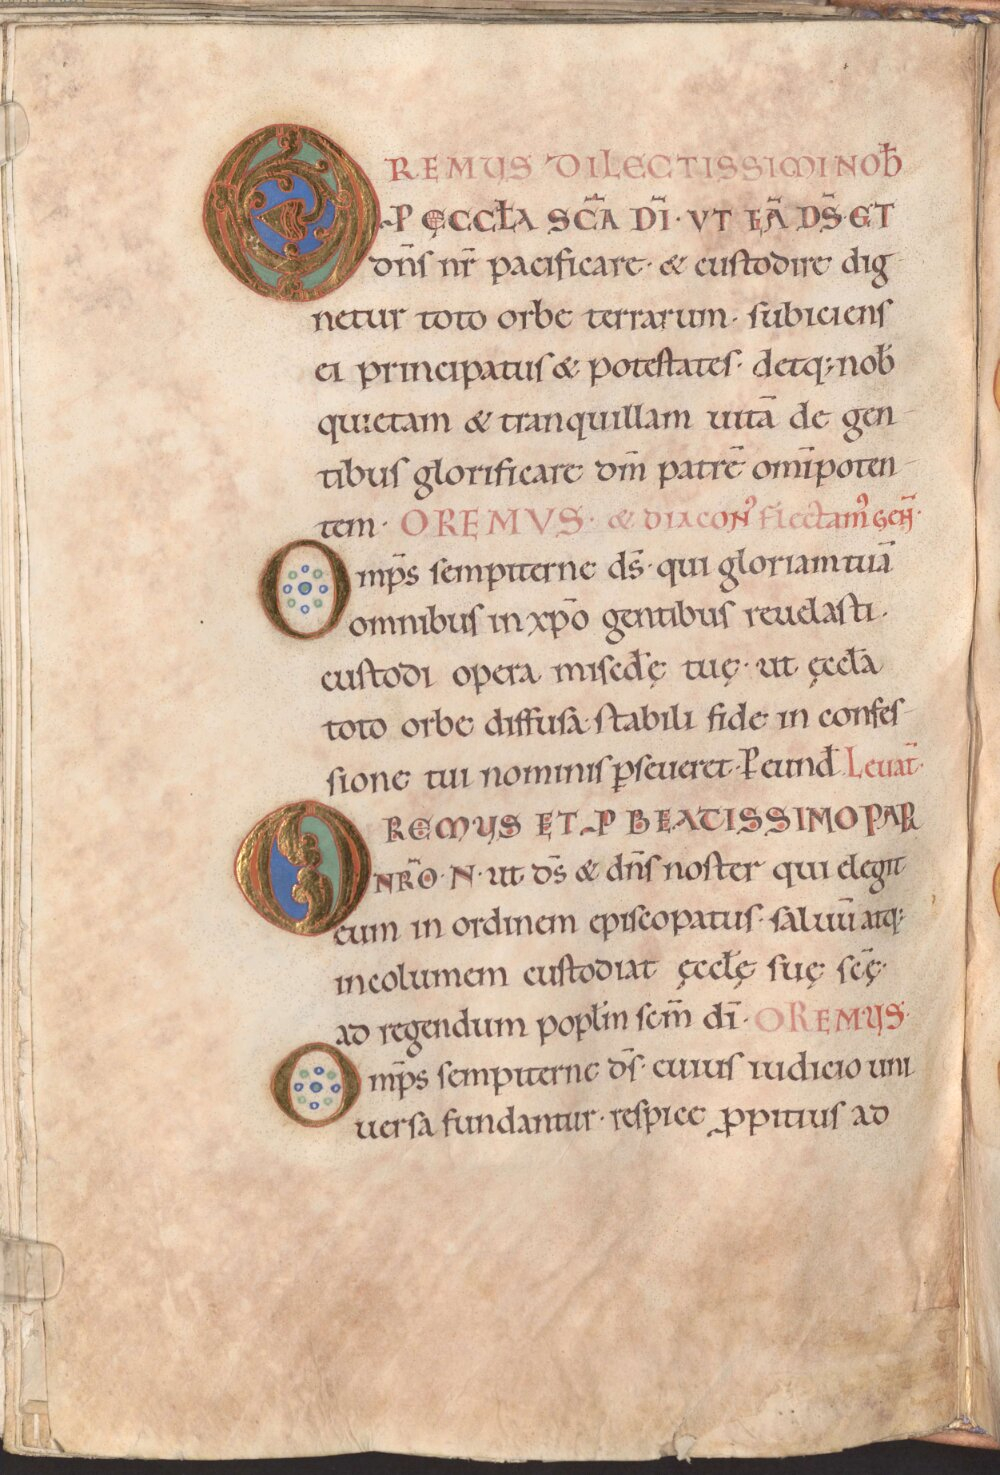 OREMUS DILECTISSIMI NOƀ
P ECCLꝬA SC̄A DĪ · UT EĀ DS̄ · ET
dn̄s nr̄ pacificare · & custodire dig-
netur toto orbe terrarum · subiciens
ei principatus & potestates · detq; nob̄
quietam & tranquillam uitā de gen-
tibus glorificare dm̄ patrē omīpoten-
tem · OREMVS · & diacon᾽ Flectam᾽ gen̄ ·
Omp̄s sempiterne ds̄ · qui gloriam tuā
omnibus in xp̄o gentibus reuelasti ·
custodi opera misc̄dę tuę · ut ęccłā
toto orbe diffusā · stabili fide in confes-
sione tui nominis ꝑseueret · P eund̄ Leuat̄ ·
OREMUS ET P BEATISSIMO PAP
NRŌ · N · ut ds̄ & dn̄s noster qui elegit
eum in ordinem episcopatus · saluū atq;
incolumem custodiat ęccłę suę sc̄ę ·
ad regendum popłm scm̄ dī · OREMUS ·
Omp̄s sempiterne ds̄ · cuius iudicio uni
uersa fundantur · respice ꝓpitius ad